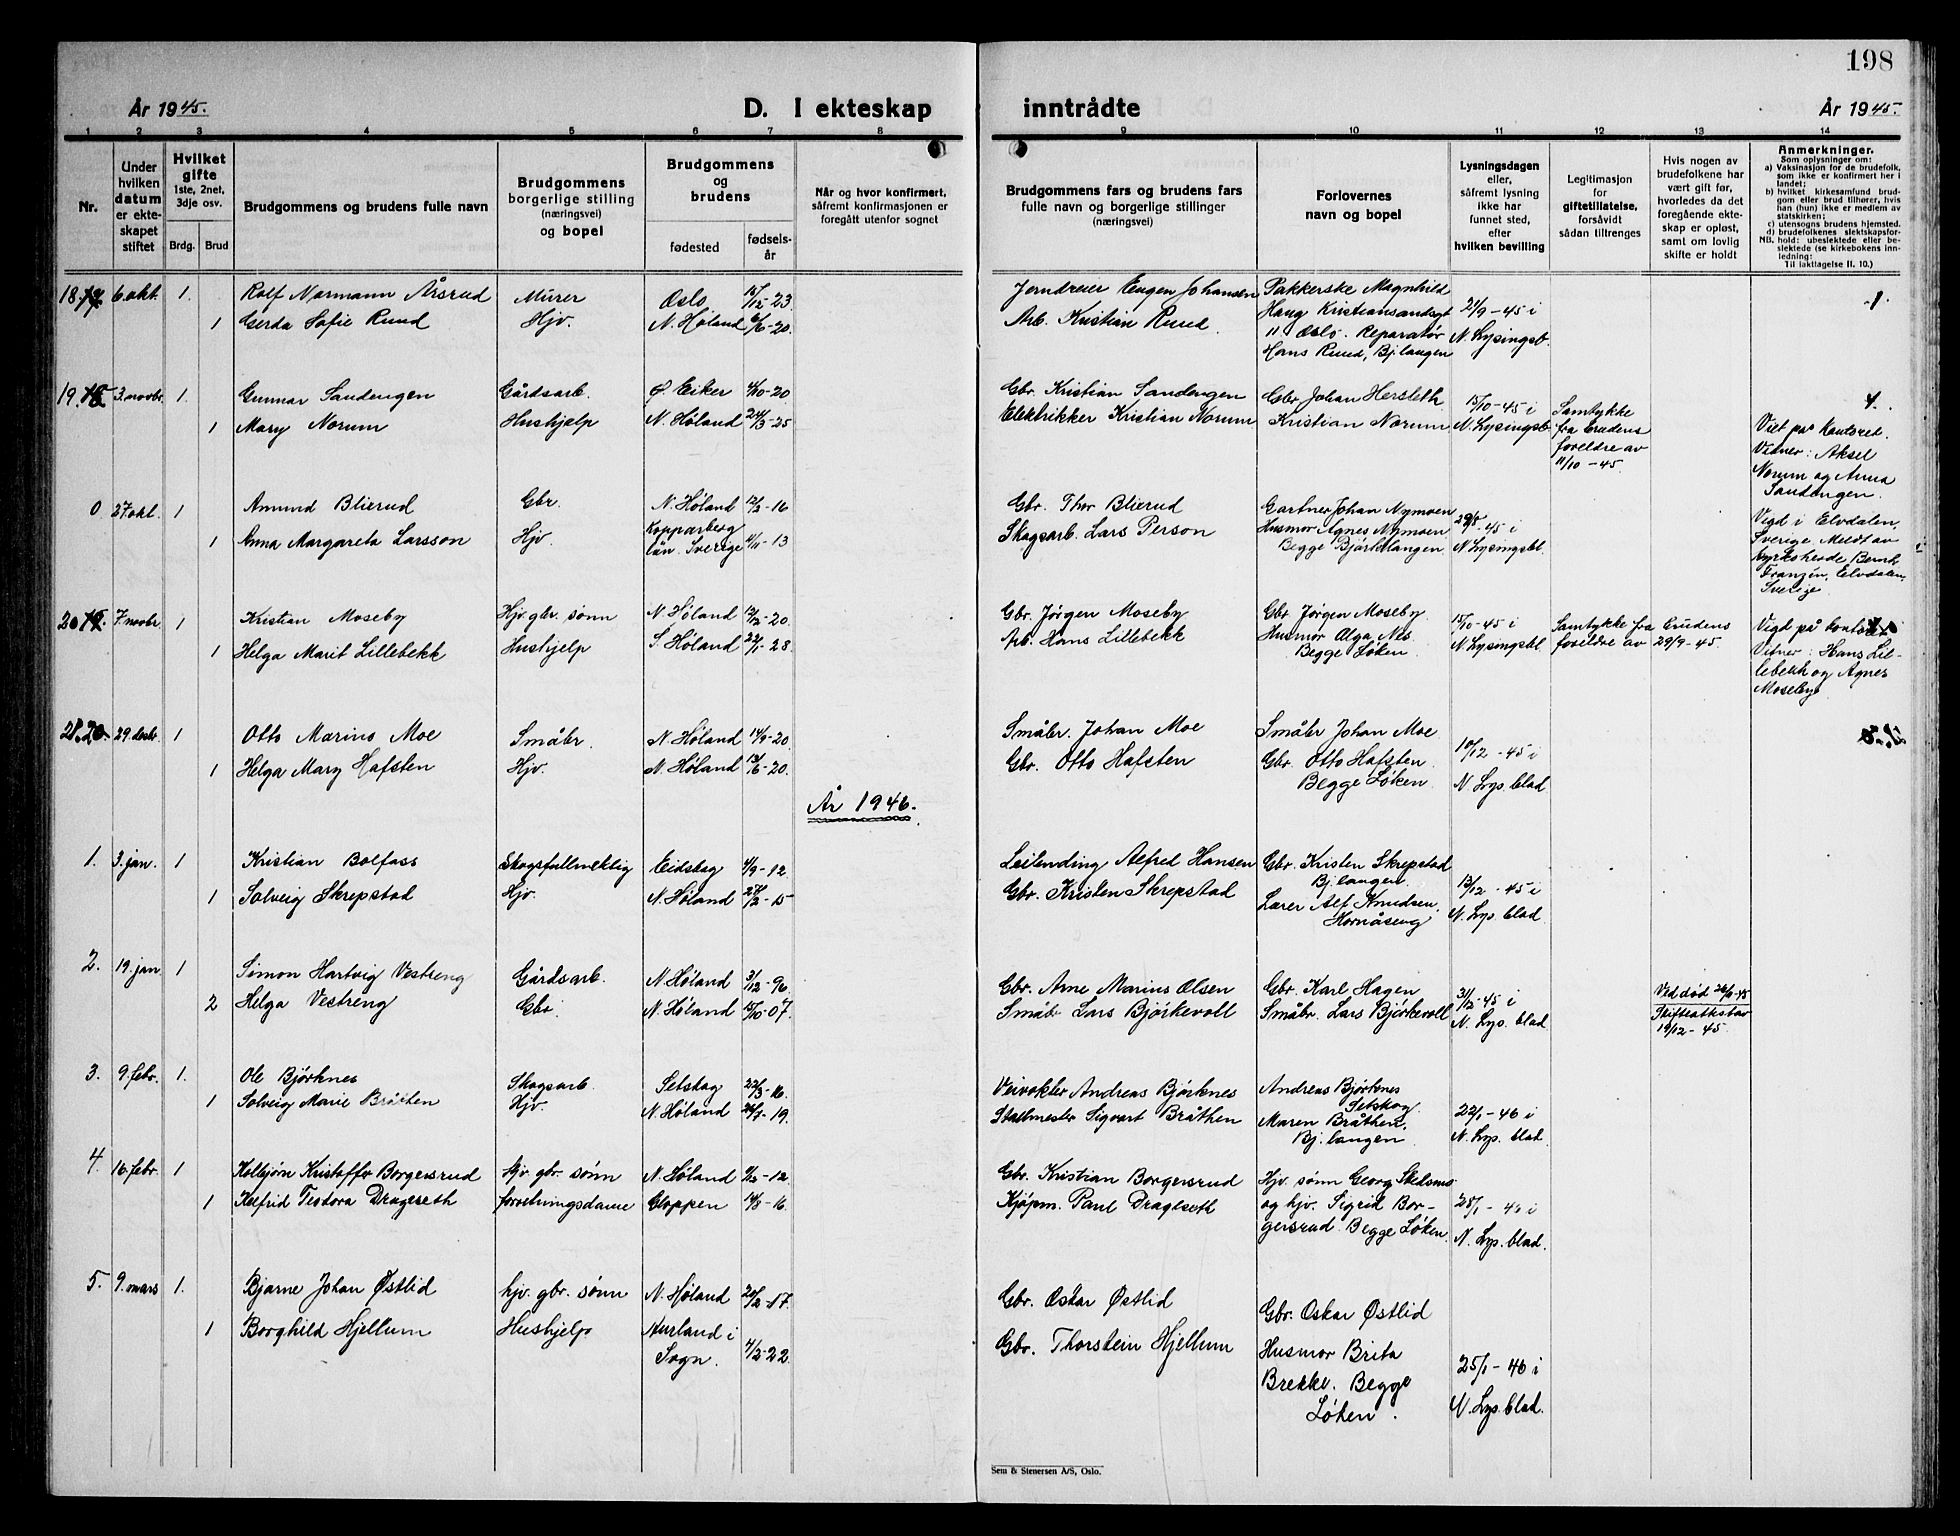 198
År 1945.
D. I ekteskap inntrådte
År 1945.
1 2 3 4 5 6 7 8 9 10 11 12 13 14
Nr.
Under hvilken datum er ekteskapet stiftet
Hvilket gifte
1ste, 2net, 3dje osv.
Brdg. Brud
Brudgommens og brudens fulle navn
Brudgommens borgerlige stilling (næringsvei) og bopel
Brudgommens og brudens
fødested
fødselsår
Når og hvor konfirmert, såfremt konfirmasjonen er foregått utenfor sognet
Brudgommens fars og brudens fars fulle navn og borgerlige stillinger (næringsvei)
Forlovernes navn og bopel
Lysningsdagen eller, såfremt lysning ikke har funnet sted, efter hvilken bevilling
Legitimasjon for giftetillatelse, forsåvidt sådan tiltrenges
Hvis nogen av brudefolkene har vært gift før, hvorledes da det foregående ekteskap er opløst, samt om lovlig skifte er holdt
Anmerkninger.
Som oplysninger om:
a) Vaksinasjon for de brudefolk, som ikke er konfirmert her i landet;
b) hvilket kirkesamfund brudgom eller brud tilhører, hvis han (hun) ikke er medlem av statskirken;
c) utensogns brudens hjemsted.
d) brudefolkenes slektskapsforhold: ubeslektede eller beslektede (se kirkebokens innledning:
NB.
Til iakttagelse II. 10.)
18. 6 okt. 1. Rolf Normann Årsrud Murer Oslo 15/12-23 Jerndreier Eugen Johansen Pakkerske Magnhild 1.
1 Gerda Sofie Ruud Hjv. N. Høland 6/6-20 Arb. Kristian Ruud. Haug Kristiansandsgt 21/9-45 i
11 Oslo. Reparatør N. Lysingsb.
Hans Ruud, Bj.langen
19. 3. novbr. 1. Gunnar Sandengen Gårdsarb. Ø. Eiker 4/10-20 Gbr. Kristian Sandengen Gbr. Johan Hersleth 15/10-45 i Samtykke
1 Mary Norum Hushjelp N. Høland 24/3-25 Elektrikker Kristian Norum Kristian Norum N. Lysingsb. fra brudens Viet på kontoret.
foreldre av Vidner: Aksel
11/10-45. Norum og Anna
Sandengen.
0. 27 okt. 1 Amund Blierud Gbr. N. Høland 12/2-16 Gbr. Thor Blierud Gartner Johan Nymoen 29/8-45 i Vigd i Elvdalen,
1 Anna Margareta Larsson Hjv. Kopparberg Skogsarb. Lars Person Husmor Agnes Nymoen N. Lysingsbl. Sverige. Meldt av
län. Sverige 4/11-13 Begge Bjørkelangen. kyrkoherde Bernh.
Franzén, Elvdalen,
Sverige.
20. 7. novbr. 1 Kristian Moseby Hjv. gbr. sønn N. Høland 12/2-20. Gbr. Jørgen Moseby Gbr. Jørgen Moseby 15/10-45 i Samtykke fra brudens Vigd på kontoret
1 Helga Marit Lillebekk Hushjelp S. Høland 22/1-28 Arb. Hans Lillebekk Husmor Olga Nes N. Lysingsbl. foreldre av 29/9-45. Vitner: Hans Lil-
Begge Løken. lebekk og Agnes
Moseby
21. 29. desbr. 1 Otto Marino Moe Småbr. N. Høland 14/9-20 Småbr. Johan Moe Småbr Johan Moe
1 Helga Mary Hafsten Hjv. N. Høland 13/6-20. Gbr. Otto Hafsten Gbr. Otto Hafsten. 10/12-45 i
Begge Løken. N. Lys. blad.
År 1946.
1. 3. jan. 1 Kristian Bolfass Skogsfullmektig Eidskog 4/9-12 Leilending Alfred Hansen Gbr. Kristen Skrepstad
1 Solveig Skrepstad Hjv. N. Høland 27/2-15 Gbr. Kristen Skrepstad Bj. langen. 13/12-45 i
Lærer Alf Knudsen, N. Lys. blad.
Hornåseng
2. 19. jan 1 Simon Hartvig Vestreng Gårdsarb. N. Høland 3/12-96 Gbr. Arne Marius Olsen Gbr. Karl Hagen 31/12-45 i Ved død
2 Helga Vestreng Gbr. N. Høland 15/10-07. Småbr Lars Bjørkevoll Småbr. Lars Bjørkevoll N. Lys. blad Skifteattest av
19/12-45.
3. 9. febr. 1. Ole Bjørknes Skogsarb. Setskog 22/3-16. Veivokter Andreas Bjørknes Andreas Bjørknes
1 Solveig Marie Bråten Hjv. N. Høland 26/7-19. Stallmester Sigvart Bråthen Setskog. 22/1-46 i
Maren Bråthen, N. Lys. blad.
Bj. langen.
4. 16. febr. 1 Kolbjørn Kristoffer Borgersrud Hjv. gbr. sønn N. Høland 11/2-12 Gbr. Kristian Borgersrud Hjv. sønn Georg Skelsmo
1 Kelfrid Teodora Drageseth forretningsdame Gloppen 14/8-16. Kjøpm. Paul Drageseth og hjv. Sigrid Bor- 28/1-46 i
gersrud. Begge Løken. N. Lys. blad.
5. 9. mars 1. Bjarne Johan Østlid hjv. gbr. sønn N. Høland 20/2-17. Gbr. Oskar Østlid Gbr. Oskar Østlid
1 Borghild Hjellum Hushjelp Aurland i Gbr. Thorstein Hjellum Husmor Brita 25/1-46 i
Sogn. 7/2-22 Brekke. Begge N. Lys. blad.
Løken.
Sem & Stenersen A/S, Oslo.